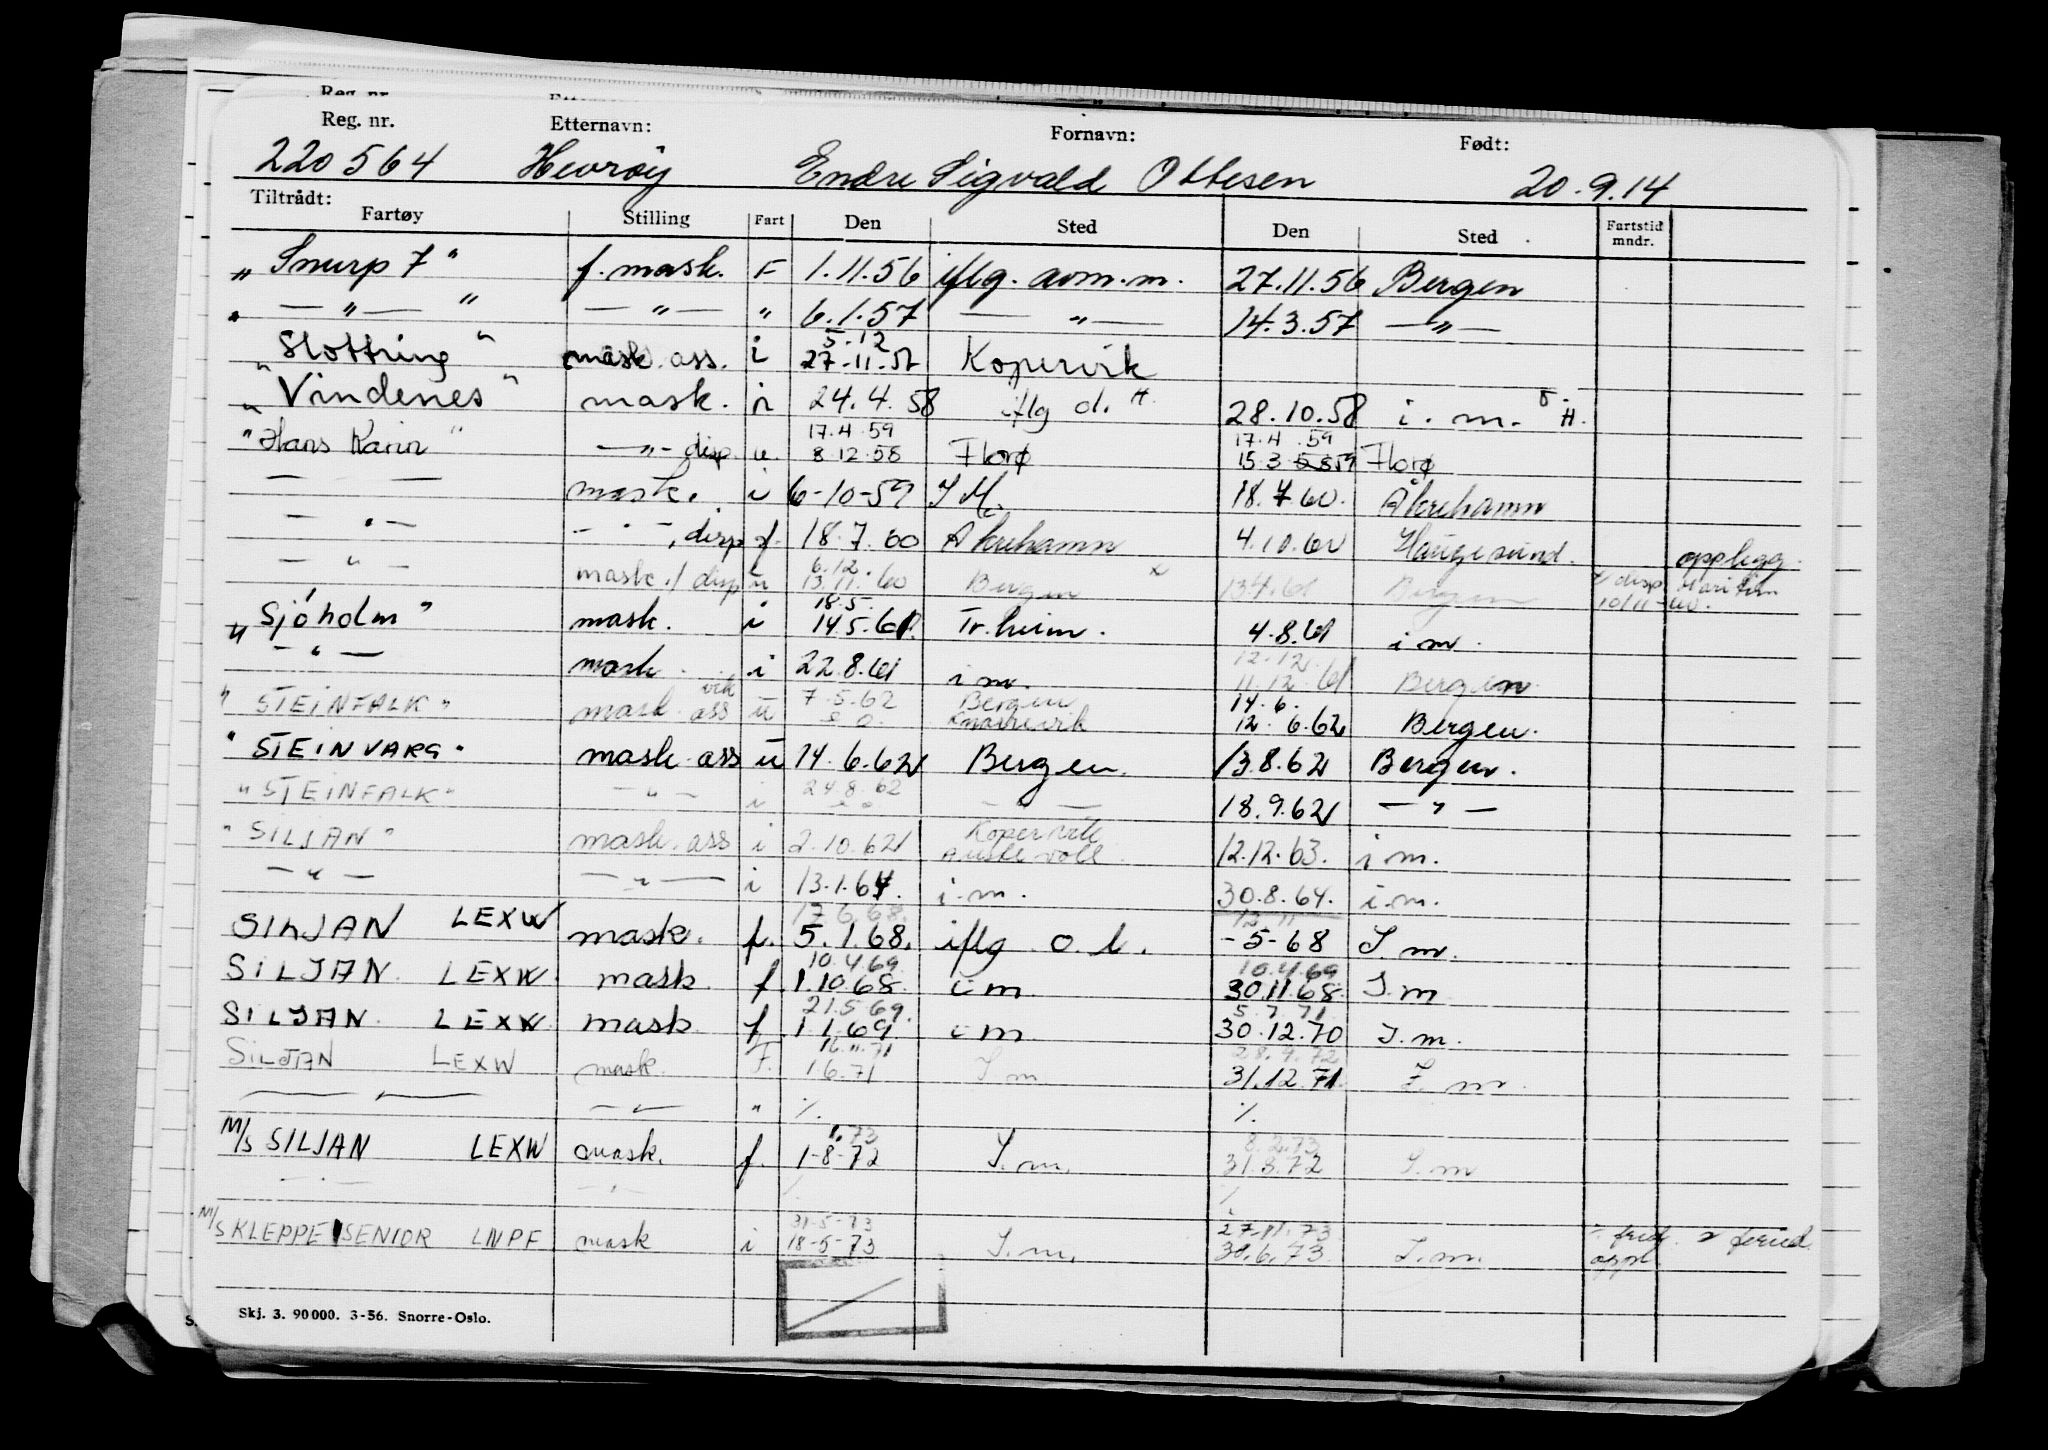 Reg. nr. Etternavn: Fornavn: Født:
220564 Hevrøy Endre Sigvald Ottesen 20.9.14
Tiltrådt:
Fartøy Stilling Fart Den Sted Den Sted Fartstid mndr.
"Snurp 7" f. mask. F 1.11.56 iflg. avm.m. 27.11.56 Bergen
" — " — " — " — " 6.1.57 — " — 14.3.57 — " —
5.12
"Slottring" mask. ass. i 27-11-57 Kopervik
"Vindenes" mask. i 24.4.58 iflg d. H. 28.10.58 i. m. H.
17.4.59 17.4.59
"Hans Karin" — " — disp. u. 8.12.58 Florø 15.3.59 Florø
— — mask. i 6-10-59 I M. 18.7.60. Åkrehamn
— " — — " —, disp f. 18.7.60 Åkrehamn 4.10.60 Haugesund. opplegg.
6.12.
— " — mask./disp u 13.11.60 Bergen x 13.4.61 Bergen x disp 10/11-60.
18.5.
"Sjøholm" mask. i 14.5.61 Tr.heim. 4.8.61 i m.
12.12.
— " — mask. i 22.8.61 i m. 11.12.61 Bergen
vik Bergen 14.6.
"STEINFALK" mask. ass u 7.5.62 Knarrevik 12.6.62 Bergen.
"STEINVARG" mask. ass u 14.6.62 Bergen. 13.8.62 Bergen.
"STEINFALK" — " — i 24.8.62 — — 18.9.62 — " —
Kopervik
"SILJAN" mask. ass i 2.10.62 Austevoll 12.12.63. i m.
— " — — " — i 13.1.64. i. m. 30.8.64. i. m.
17.6.68. 12.11
SILJAN LEXW mask. f. 5.1.68. iflg o. l. -5-68 I. m.
10.4.69 10.4.69
SILJAN. LEXW. mask f. 1.10.68. i m. 30.11.68. I. m
21.5.69. 5.7.71
SILJAN. LEXW. mask f. 1.1.69. i m. 30.12.70 I. m.
16.11.71 28.4.72
SILJAN LEXW mask. F. 1.6.71 I m 31.12.71. I. m.
— " — — " — " %. %.
1.73 8.2.73
M/S SILJAN LEXW mask. f. 1-8-72 I. m. 31.8.72 I. m
— " — — " — %
31-5-73 27.11.73
M/S KLEPPE SENIOR LNPF mask i 18-5-73 I. m. 30.6.73 I. m.
Skj. 3. 90000. 3-56. Snorre-Oslo.